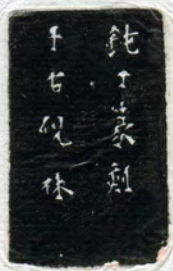 鈍丁篆刻
千古硯林